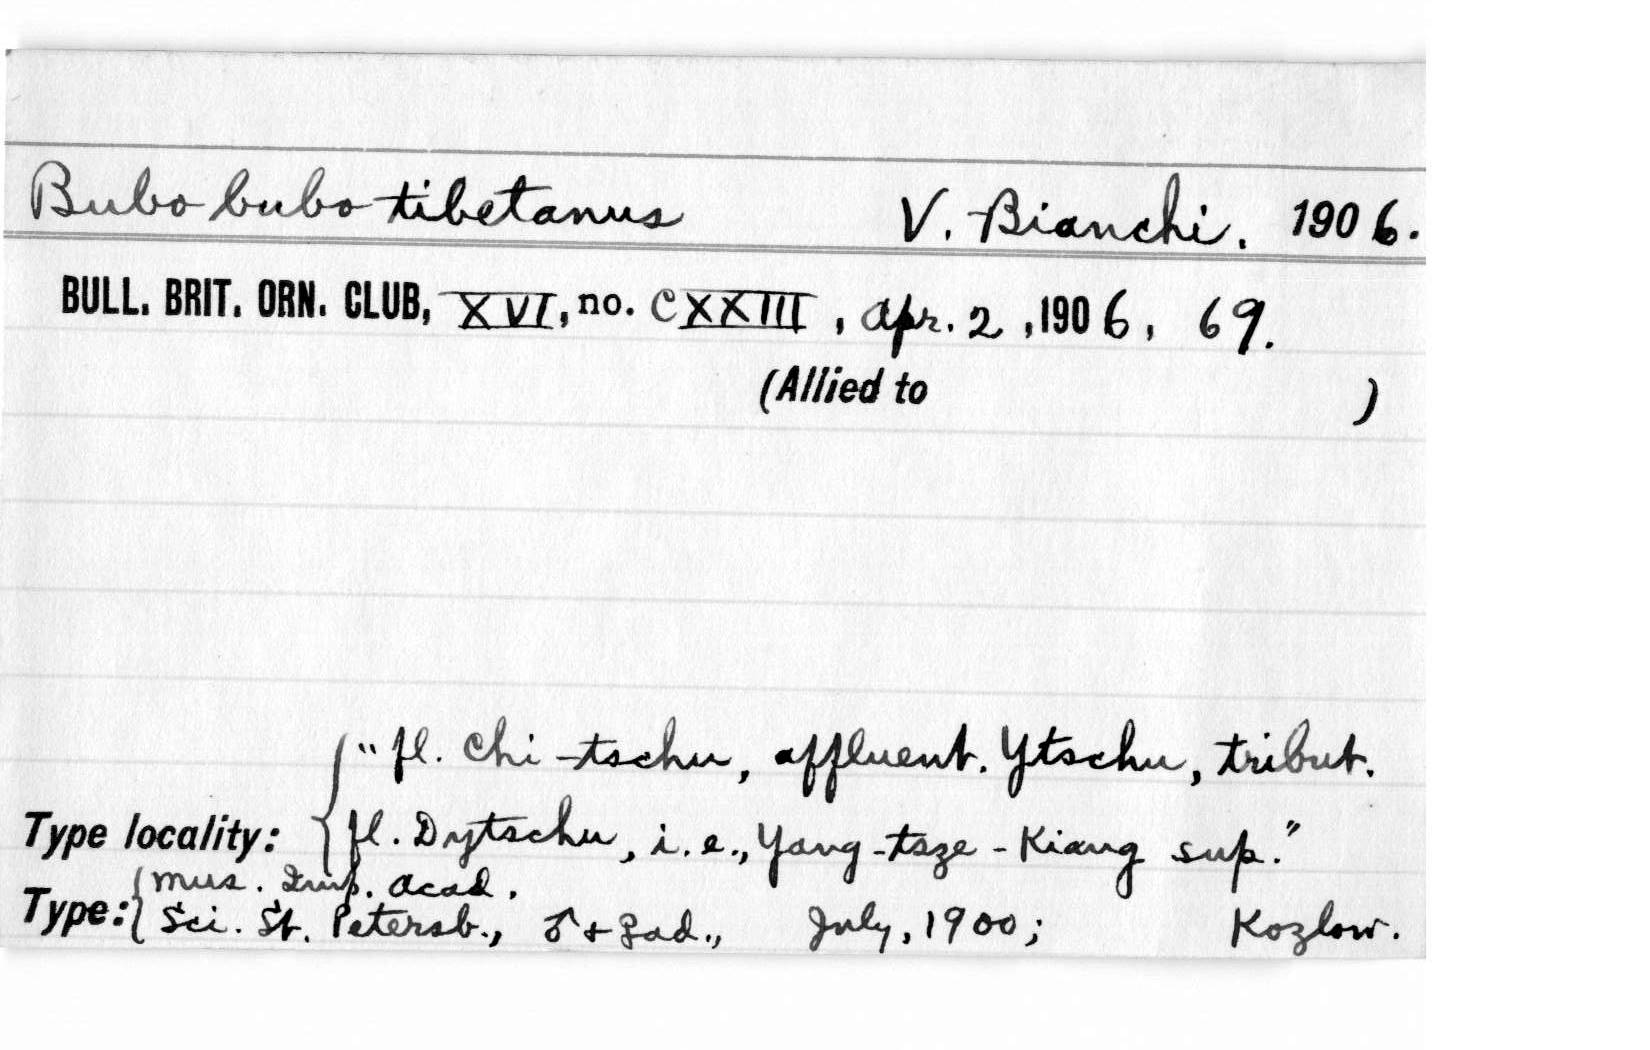 Bubo bubo tibetanus V. Bianchi. 1906.
BULL. BRIT. ORN. CLUB, XVI, no. CXXIII, Apr. 2, 1906, 69.
(Allied to )
"fl. Chi-tschu, affluent. Ytschu, tribut.
Type locality: fl. Dytschu, i.e., Yang-tsze-Kiang sup."
Mus. Imp. Acad.
Type: Sci. St. Petersb., ♂ + ♀ ad., July, 1900; Kozlow.